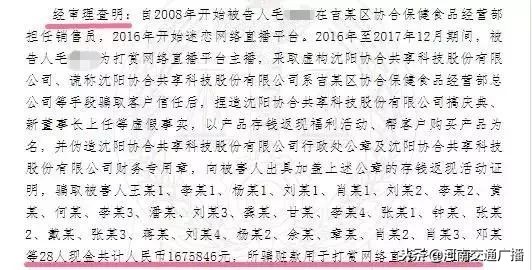 经审理查明：自2008年开始被告人毛 在吉某区协合保健食品经营部
担任销售员，2016年开始迷恋网络直播平台。2016年至2017年12月期间，被
告人毛 为打赏网络直播平台主播，采取虚构沈阳协合共享科技股份有限
公司、谎称沈阳协合共享科技股份有限公司系吉某区协合保健食品经营部总
公司等手段骗取客户信任后，捏造沈阳协合共享科技股份有限公司搞庆典、
新董事长上任等虚假事实，以产品存钱返现福利活动、帮客户购买产品为
名，并伪造沈阳协合共享科技股份有限公司行政处公章及沈阳协合共享科技
股份有限公司财务专用章，向被害人出具加盖上述公章的存钱返现活动证
明，骗取被害人王某1、李某1、杨某1、刘某1、肖某1、刘某2、李某2、黄
某、何某、李某3、潘某、刘某3、龚某、甘某、李某4、张某1、钟某、张某
2、戴某、张某3、蒋某、刘某4、杨某2、余某、章某、肖某2、肖某3、邓某
等28人现金共计人民币1675846元，所骗赃款用于打赏网络直
头条@河南交通广播